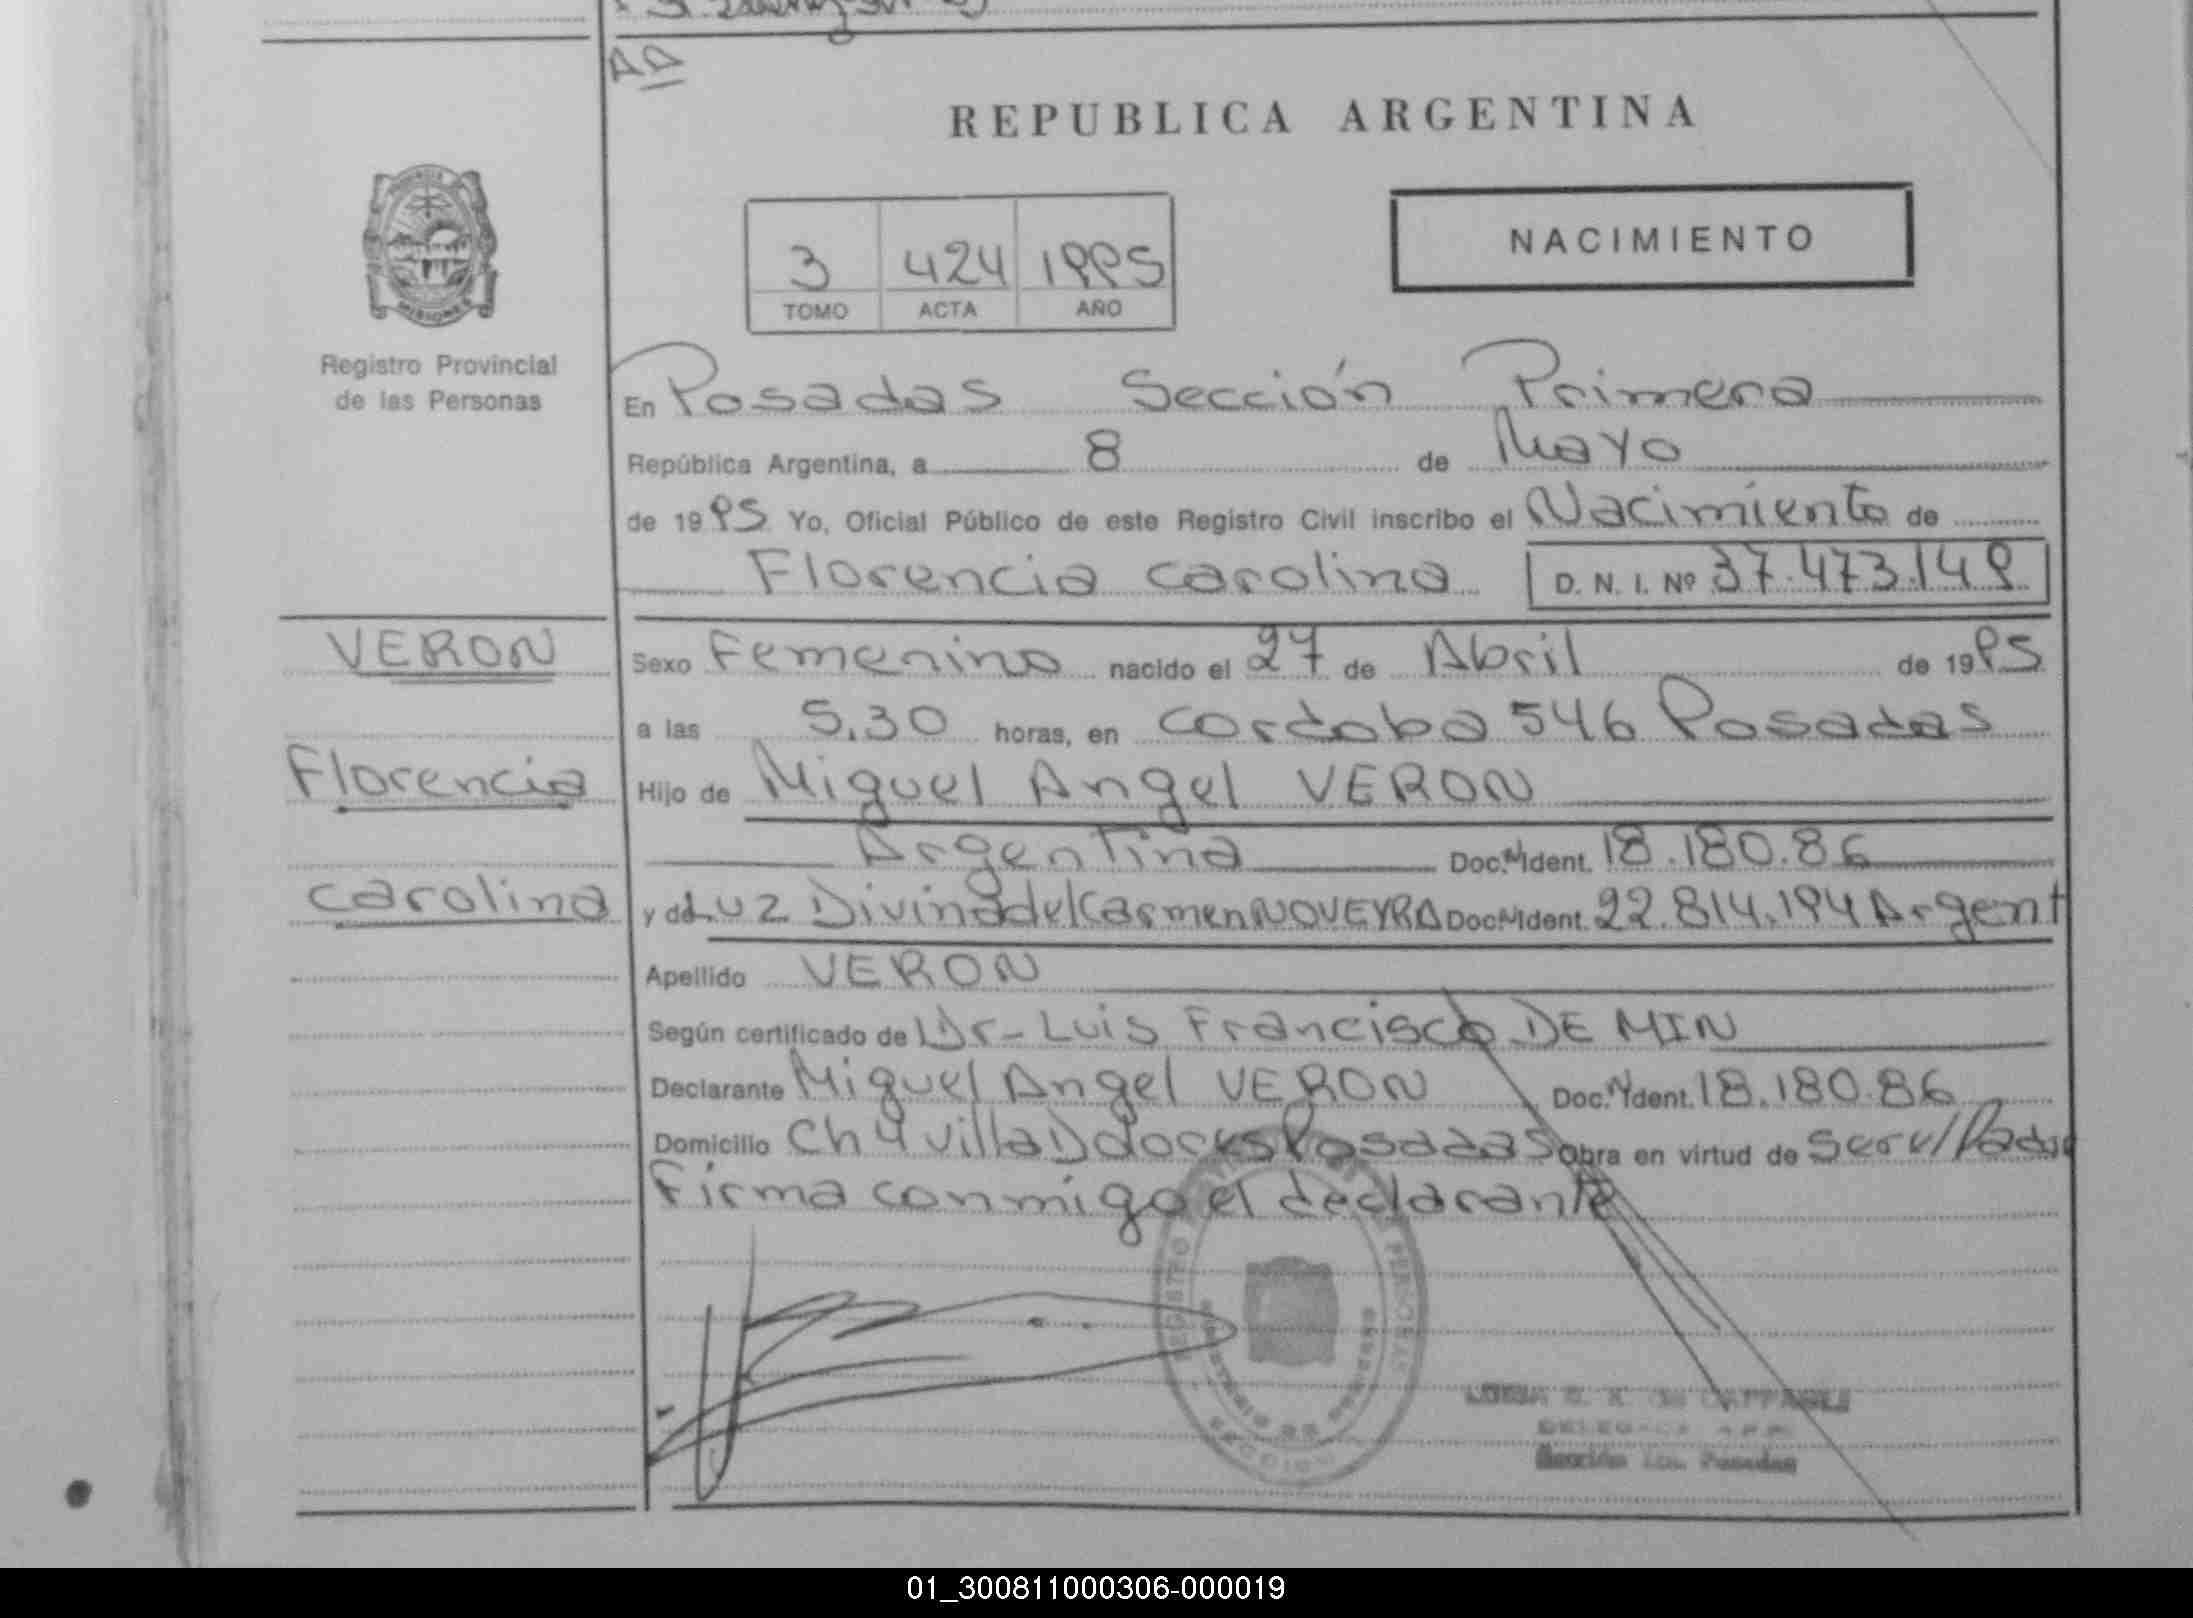 AA
REPUBLICA ARGENTINA
3 424 1995
TOMO ACTA AÑO
NACIMIENTO
PROVINCIA MISIONES
Registro Provincial
de las Personas
En Posadas Sección Primera
República Argentina, a 8 de Mayo
de 1995 Yo, Oficial Público de este Registro Civil inscribo el Nacimiento de
Florencia Carolina D. N. I. Nº 37.473.149
VERON
Florencia
Carolina
Sexo Femenino nacido el 27 de Abril de 1995
a las 5,30 horas, en Cordoba 546 Posadas
Hijo de Miguel Angel VERON
Argentina Doc. N Ident. 18.180.86
y de Luz Divina del Carmen NOVEYRA Doc. N Ident. 22.814.194 Argent
Apellido VERON
Según certificado de Dr- Luis Francisco DE MIN
Declarante Miguel Angel VERON Doc. N Ident. 18.180.86
Domicilio Ch 4 villa D Posadas Obra en virtud de Ser u/Padre
Firma conmigo el declarante
REGISTRO PERSONAS
SECCION
Sección 1ra. Posadas
01_300811000306-000019